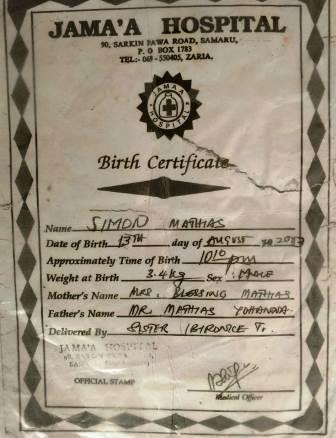 JAMA'A HOSPITAL
90, SARKIN PAWA ROAD, SAMARU,
P. O BOX 1783
TEL:- 069 - 550405, ZARIA.
JAMAA
HOSPITAL
Birth Certificate
Name SIMON MATHIAS
Date of Birth 13TH day of AUGUST
Approximately Time of Birth 1010 pm
Weight at Birth 3.4kg Sex MALE
Mother's Name MRS. BLESSING MATHIAS
Father's Name MR MATHIAS YOHANNA
Delivered By SISTER
JAMA'A HOSPITAL
OFFICIAL STAMP
Medical Officer